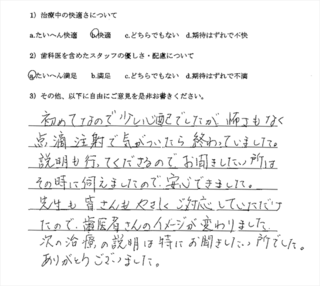 1）治療中の快適さについて
a.たいへん快適 b.快適 c.どちらでもない d.期待はずれで不快
2）歯科医を含めたスタッフの優しさ・配慮について
a.たいへん満足 b.満足 c.どちらでもない d.期待はずれで不満
3）その他、以下に自由にご意見を是非お書きください。
初めてなので少し心配でしたが怖さもなく
点滴注射で気がついたら終わっていました。
説明も行ってくださるのでお聞きしたい所は
その時に伺えましたので、安心できました。
先生も皆さんもやさしくご対応していただけ
たので、歯医者さんのイメージが変わりました
次の治療の説明は特にお聞きしたい所でした。
ありがとうございました。